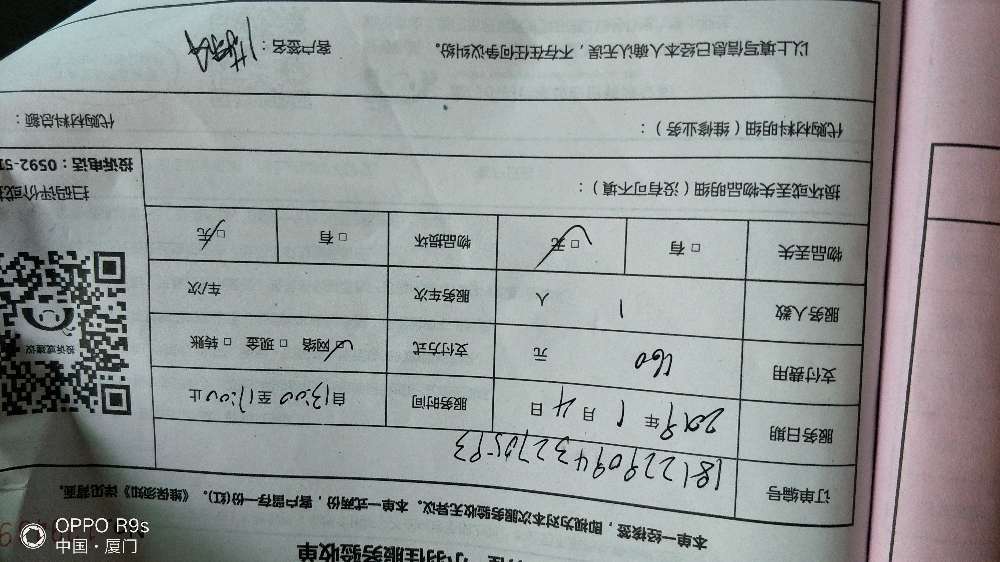 小羽佳服务验收单
本单一经接签，即视为对本次服务验收无异议。本单一式两份，客户留存一份(红)。《维保须知》详见背面。
订单编号 18122909432705 93
服务日期 2019年1月4日 服务时间 自13:00至17:00止
支付费用 160 元 支付方式 ☑网络 □现金 □转账
服务人数 1 人 服务车次 车/次
物品丢失 □有 ☑无 物品损坏 □有 ☑无
投诉或建议
扫码评价或
投诉电话：0592-51
损坏或丢失物品明细（没有可不填）：
代购材料明细（维修业务）： 代购材料总额
以上填写信息已经本人确认无误，不存在任何争议纠纷。 客户签名：
OPPO R9s
中国·厦门